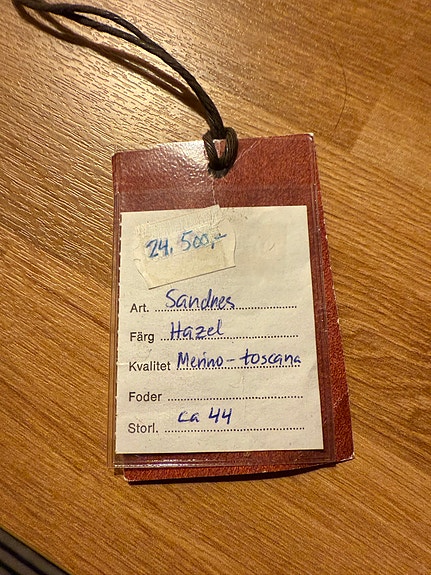 24.500,-
Art. Sandnes
Färg Hazel
Kvalitet Merino-toscana
Foder
Storl. ca 44